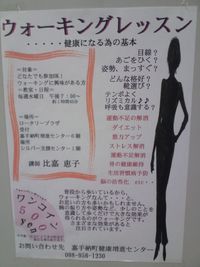 ウォーキングレッスン
・・・・・健康になる為の基本
目線？
あごをひく？
姿勢、まっすぐ？
どんな格好？
靴選び？
テンポよく
リズミカル♪♪
呼吸も意識する？
＜対象＞
どなたでも参加OK！
ウォーキングに興味がある方
＜教室・日程＞
毎週水曜日　午後7：00～
＜場所＞
ロータリープラザ
受付
嘉手納町健康増進センター6階
場所
シルバー支援センター1階
講師　比嘉 恵子
運動不足の解消
ダイエット
筋力アップ
ストレス解消
運動不足解消
骨の健康維持
生活習慣病予防
脳の活性化　etc・・
ワンコイン
500
普段から歩いているから、
ウォーキングなんて・・・と、
お問い合わせ先　嘉手納町健康増進センター
098-956-1230